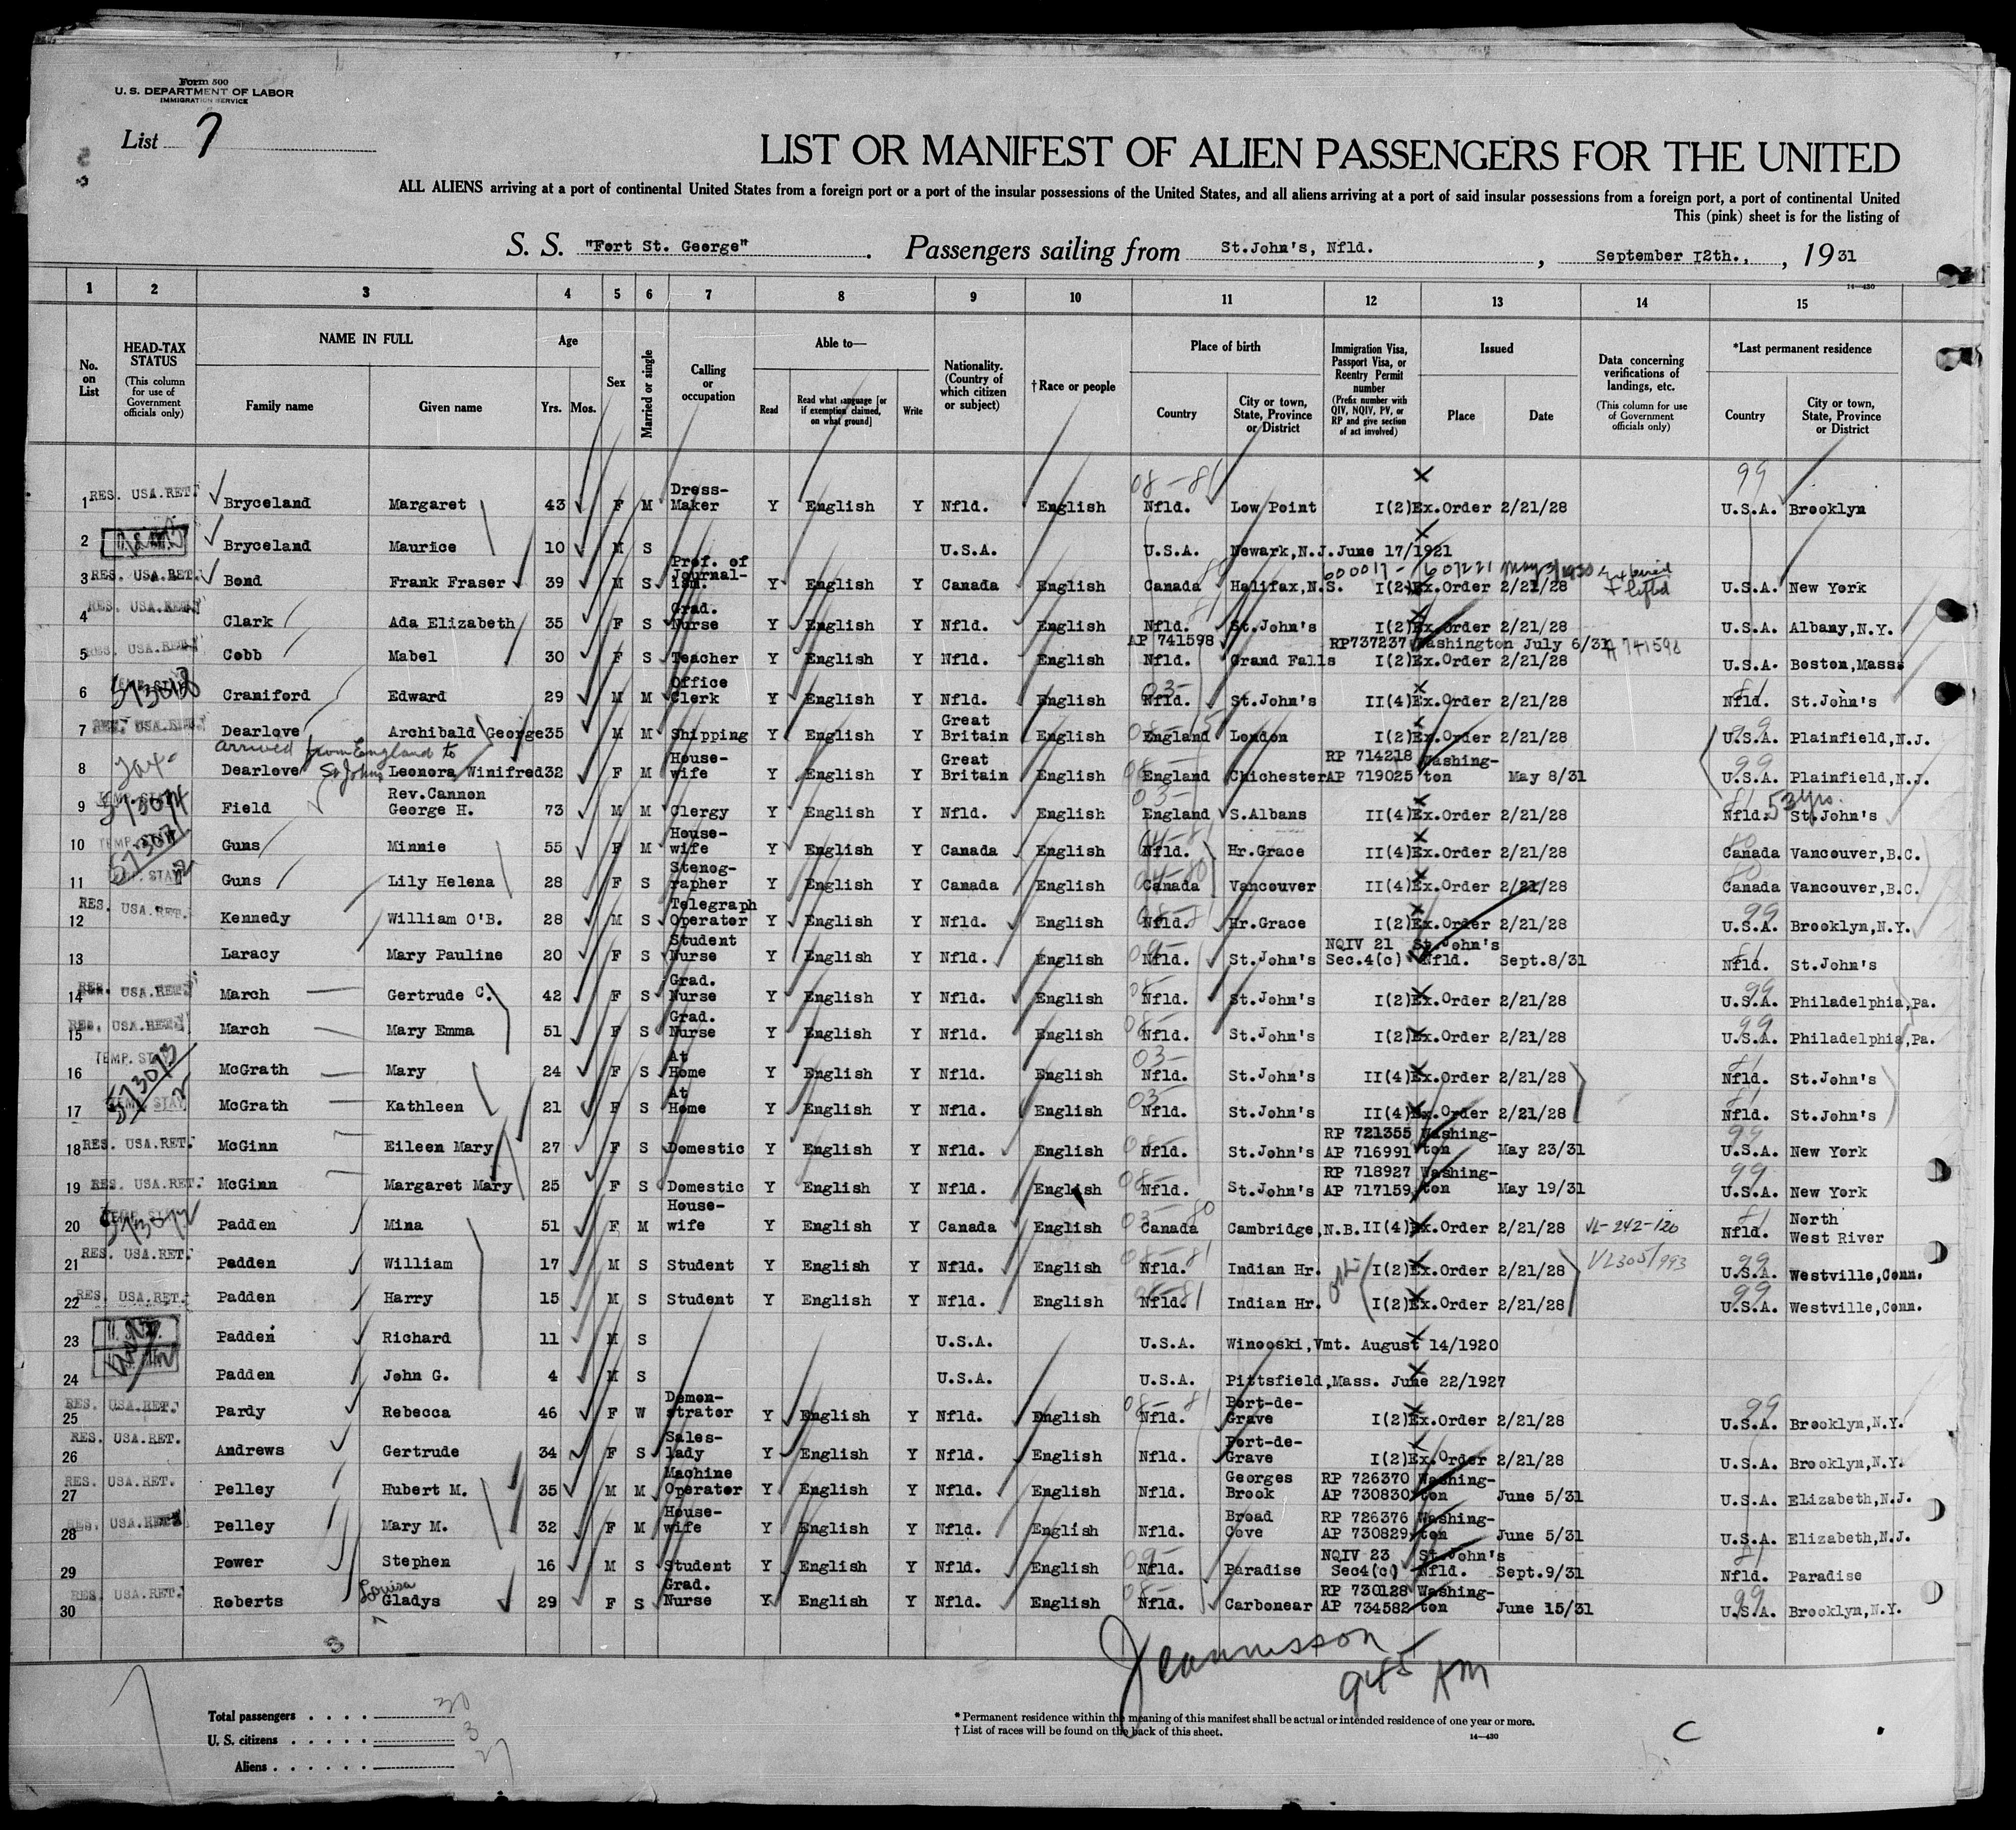 Form 500
U. S. DEPARTMENT OF LABOR
IMMIGRATION SERVICE
List 7
LIST OR MANIFEST OF ALIEN PASSENGERS FOR THE UNITED
ALL ALIENS arriving at a port of continental United States from a foreign port or a port of the insular possessions of the United States, and all aliens arriving at a port of said insular possessions from a foreign port, a port of continental United
This (pink) sheet is for the listing of
S. S. "Fort St. George" . Passengers sailing from St.John's, Nfld. , September I2th., , 1931
14—430
1 2 3 4 5 6 7 8 9 10 11 12 13 14 15
No. on List
HEAD-TAX STATUS
(This column for use of Government officials only)
NAME IN FULL
Family name Given name
Age
Yrs. Mos.
Sex
Married or single
Calling or occupation
Able to—
Read
Read what language [or if exemption claimed, on what ground]
Write
Nationality. (Country of which citizen or subject)
†Race or people
Place of birth
Country
City or town, State, Province or District
Immigration Visa, Passport Visa, or Reentry Permit number
(Prefix number with QIV, NQIV, PV, or RP and give section of act involved)
Issued
Place Date
Data concerning verifications of landings, etc.
(This column for use of Government officials only)
*Last permanent residence
Country
City or town, State, Province or District
1 RES. USA.RET. Bryceland Margaret 43 F M Dress-Maker Y English Y Nfld. English 08-81 Nfld. Low Point I(2)Ex.Order 2/21/28 99 U.S.A. Brooklyn
2 Bryceland Maurice 10 M S U.S.A. U.S.A. Newark,N.J.June 17/1921
3 RES. USA.RET. Bond Frank Fraser 39 M S Prof. of Journal-ism. Y English Y Canada English Canada Halifax,N.S. I(2)Ex.Order 2/21/28 U.S.A. New York
4 RES. USA.RET. Clark Ada Elizabeth 35 F S Grad. Nurse Y English Y Nfld. English Nfld. St.John's I(2)Ex.Order 2/21/28 U.S.A. Albany,N.Y.
5 RES. USA.RET. Cobb Mabel 30 F S Teacher Y English Y Nfld. English AP 741598 Nfld. Grand Falls RP737237 Washington July 6/31 I(2)Ex.Order 2/21/28 A 741598 U.S.A. Boston,Masss
6 Craniford Edward 29 M M Office Clerk Y English Y Nfld. English 03- Nfld. St.John's II(4)Ex.Order 2/21/28 81 Nfld. St.John's
7 RES. USA.RET. Dearlove Archibald George 35 M M Shipping Y English Y Great Britain English England London I(2)Ex.Order 2/21/28 99 U.S.A. Plainfield,N.J.
arrived from England to St Johns
8 Dearlove Leonora Winifred 32 F M House-wife Y English Y Great Britain English England Chichester RP 714218 AP 719025 Washing-ton May 8/31 99 U.S.A. Plainfield,N.J.
9 TEMP. STAY Field Rev.Cannon George H. 73 M M Clergy Y English Y Nfld. English 03- England S.Albans II(4)Ex.Order 2/21/28 81 53 yrs. Nfld. St.John's
10 TEMP. STAY Guns Minnie 55 F M House-wife Y English Y Canada English Nfld. Hr.Grace II(4)Ex.Order 2/21/28 Canada Vancouver,B.C.
11 TEMP. STAY Guns Lily Helena 28 F S Stenog-rapher Y English Y Canada English Canada Vancouver II(4)Ex.Order 2/21/28 Canada Vancouver,B.C.
12 RES. USA.RET. Kennedy William O'B. 28 M S Telegraph Operator Y English Y Nfld. English Nfld. Hr.Grace I(2)Ex.Order 2/21/28 99 U.S.A. Brooklyn,N.Y.
13 Laracy Mary Pauline 20 F S Student Nurse Y English Y Nfld. English Nfld. St.John's NQIV 21 Sec.4(c) St.John's Nfld. Sept.8/31 81 Nfld. St.John's
14 RES. USA.RET. March Gertrude C. 42 F S Grad. Nurse Y English Y Nfld. English Nfld. St.John's I(2)Ex.Order 2/21/28 99 U.S.A. Philadelphia,Pa.
15 RES. USA.RET. March Mary Emma 51 F S Grad. Nurse Y English Y Nfld. English Nfld. St.John's I(2)Ex.Order 2/21/28 99 U.S.A. Philadelphia,Pa.
16 TEMP. STAY McGrath Mary 24 F S At Home Y English Y Nfld. English 03- Nfld. St.John's II(4)Ex.Order 2/21/28 81 Nfld. St.John's
17 TEMP. STAY McGrath Kathleen 21 F S At Home Y English Y Nfld. English 03- Nfld. St.John's II(4)Ex.Order 2/21/28 81 Nfld. St.John's
18 RES. USA.RET. McGinn Eileen Mary 27 F S Domestic Y English Y Nfld. English 08- Nfld. St.John's RP 721355 AP 716991 Washing-ton May 23/31 99 U.S.A. New York
19 RES. USA.RET. McGinn Margaret Mary 25 F S Domestic Y English Y Nfld. English 08- Nfld. St.John's RP 718927 AP 717159 Washing-ton May 19/31 99 U.S.A. New York
20 Padden Mina 51 F M House-wife Y English Y Canada English 03- 80 Canada Cambridge,N.B. II(4)Ex.Order 2/21/28 VL-242-120 81 Nfld. North West River
21 RES. USA.RET. Padden William 17 M S Student Y English Y Nfld. English 08-81 Nfld. Indian Hr. I(2)Ex.Order 2/21/28 VL305/993 99 U.S.A. Westville,Conn.
22 RES. USA.RET. Padden Harry 15 M S Student Y English Y Nfld. English 08-81 Nfld. Indian Hr. I(2)Ex.Order 2/21/28 99 U.S.A. Westville,Conn.
23 Padden Richard 11 M S U.S.A. U.S.A. Winooski,Vmt. August 14/1920
24 Padden John G. 4 M S U.S.A. U.S.A. Pittsfield,Mass. June 22/1927
25 RES. USA.RET. Pardy Rebecca 46 F W Demon-strator Y English Y Nfld. English 08-81 Nfld. Port-de-Grave I(2)Ex.Order 2/21/28 99 U.S.A. Brooklyn,N.Y.
26 RES. USA.RET. Andrews Gertrude 34 F S Sales-lady Y English Y Nfld. English Nfld. Port-de-Grave I(2)Ex.Order 2/21/28 U.S.A. Brooklyn,N.Y.
27 RES. USA.RET. Pelley Hubert M. 35 M M Machine Operator Y English Y Nfld. English Nfld. Georges Brook RP 726370 AP 730830 Washing-ton June 5/31 U.S.A. Elizabeth,N.J.
28 RES. USA.RET. Pelley Mary M. 32 F M House-wife Y English Y Nfld. English Nfld. Broad Cove RP 726376 AP 730829 Washing-ton June 5/31 U.S.A. Elizabeth,N.J.
29 Power Stephen 16 M S Student Y English Y Nfld. English 09- Nfld. Paradise NQIV 23 Sec4(c) St.John's Nfld. Sept.9/31 81 Nfld. Paradise
30 RES. USA.RET. Roberts Louisa Gladys 29 F S Grad. Nurse Y English Y Nfld. English 08- Nfld. Carbonear RP 730128 AP 734582 Washing-ton June 15/31 99 U.S.A. Brooklyn,N.Y.
945 AM
Total passengers . . . . 30
U. S. citizens . . . . . 3
Aliens . . . . . . 27
* Permanent residence within the meaning of this manifest shall be actual or intended residence of one year or more.
† List of races will be found on the back of this sheet.
14—430
C